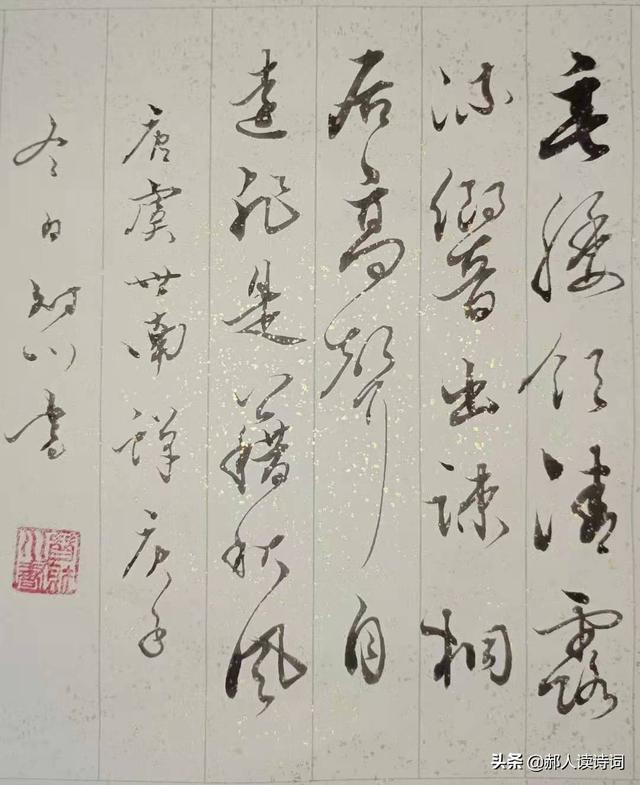 垂緌飲清露
流響出疎桐
居高聲自
遠非是藉秋風
唐虞世南蟬庚子
冬日川書
头条 @郝人读诗词